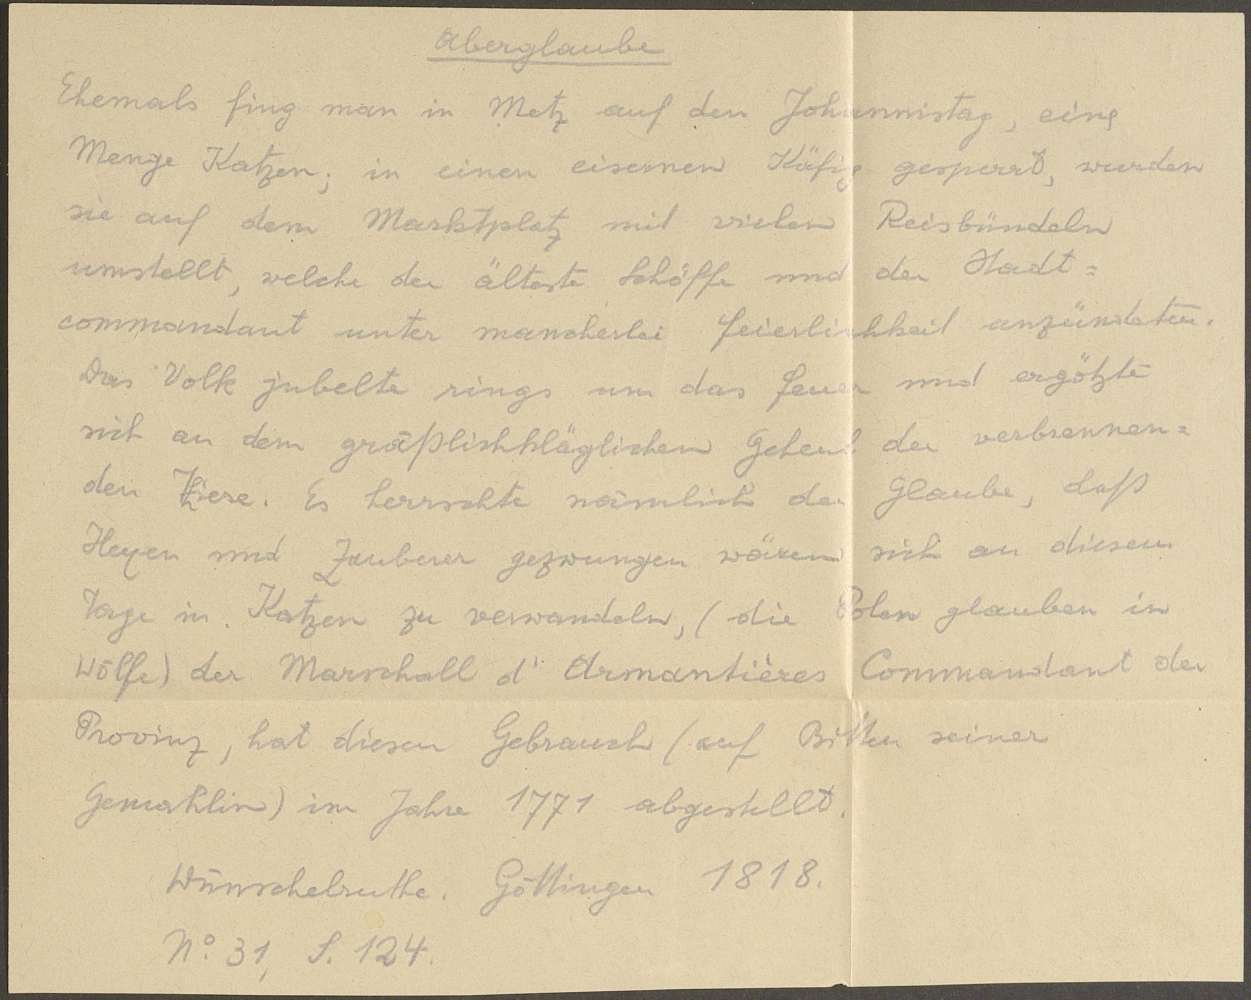 Aberglaube
Ehemals fing man in Metz auf den Johannistag, eine
Menge Katzen; in einen eisernen Käfig gesperrt, wurden
sie auf dem Marktplatz mit vielen Reisbündeln
umstellt, welche der älteste Schöffe und der Stadt=
commandant unter mancherlei Feierlichkeit anzündeten.
Das Volk jubelte rings um das Feuer und ergötzte
sich an dem gräßlichkläglichen Geheul der verbrennen=
den Tiere. Es herrschte nämlich der Glaube, daß
Hexen und Zauberer gezwungen wären sich an diesem
Tage in Katzen zu verwandeln, (die Polen glauben in
Wölfe) der Marschall d'Armantières Commandant der
Provinz, hat diesen Gebrauch (auf Bitten seiner
Gemahlin) im Jahre 1771 abgestellt.
Wünschelruthe. Göttingen 1818.
No. 31, S. 124.